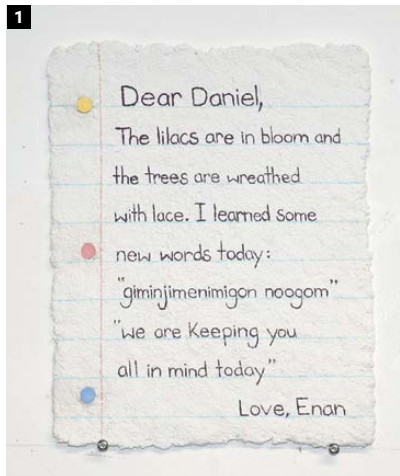 1
Dear Daniel,
The lilacs are in bloom and
the trees are wreathed
with lace. I learned some
new words today:
"giminjimenimigon noogom"
"we are Keeping you
all in mind today"
Love, Enan